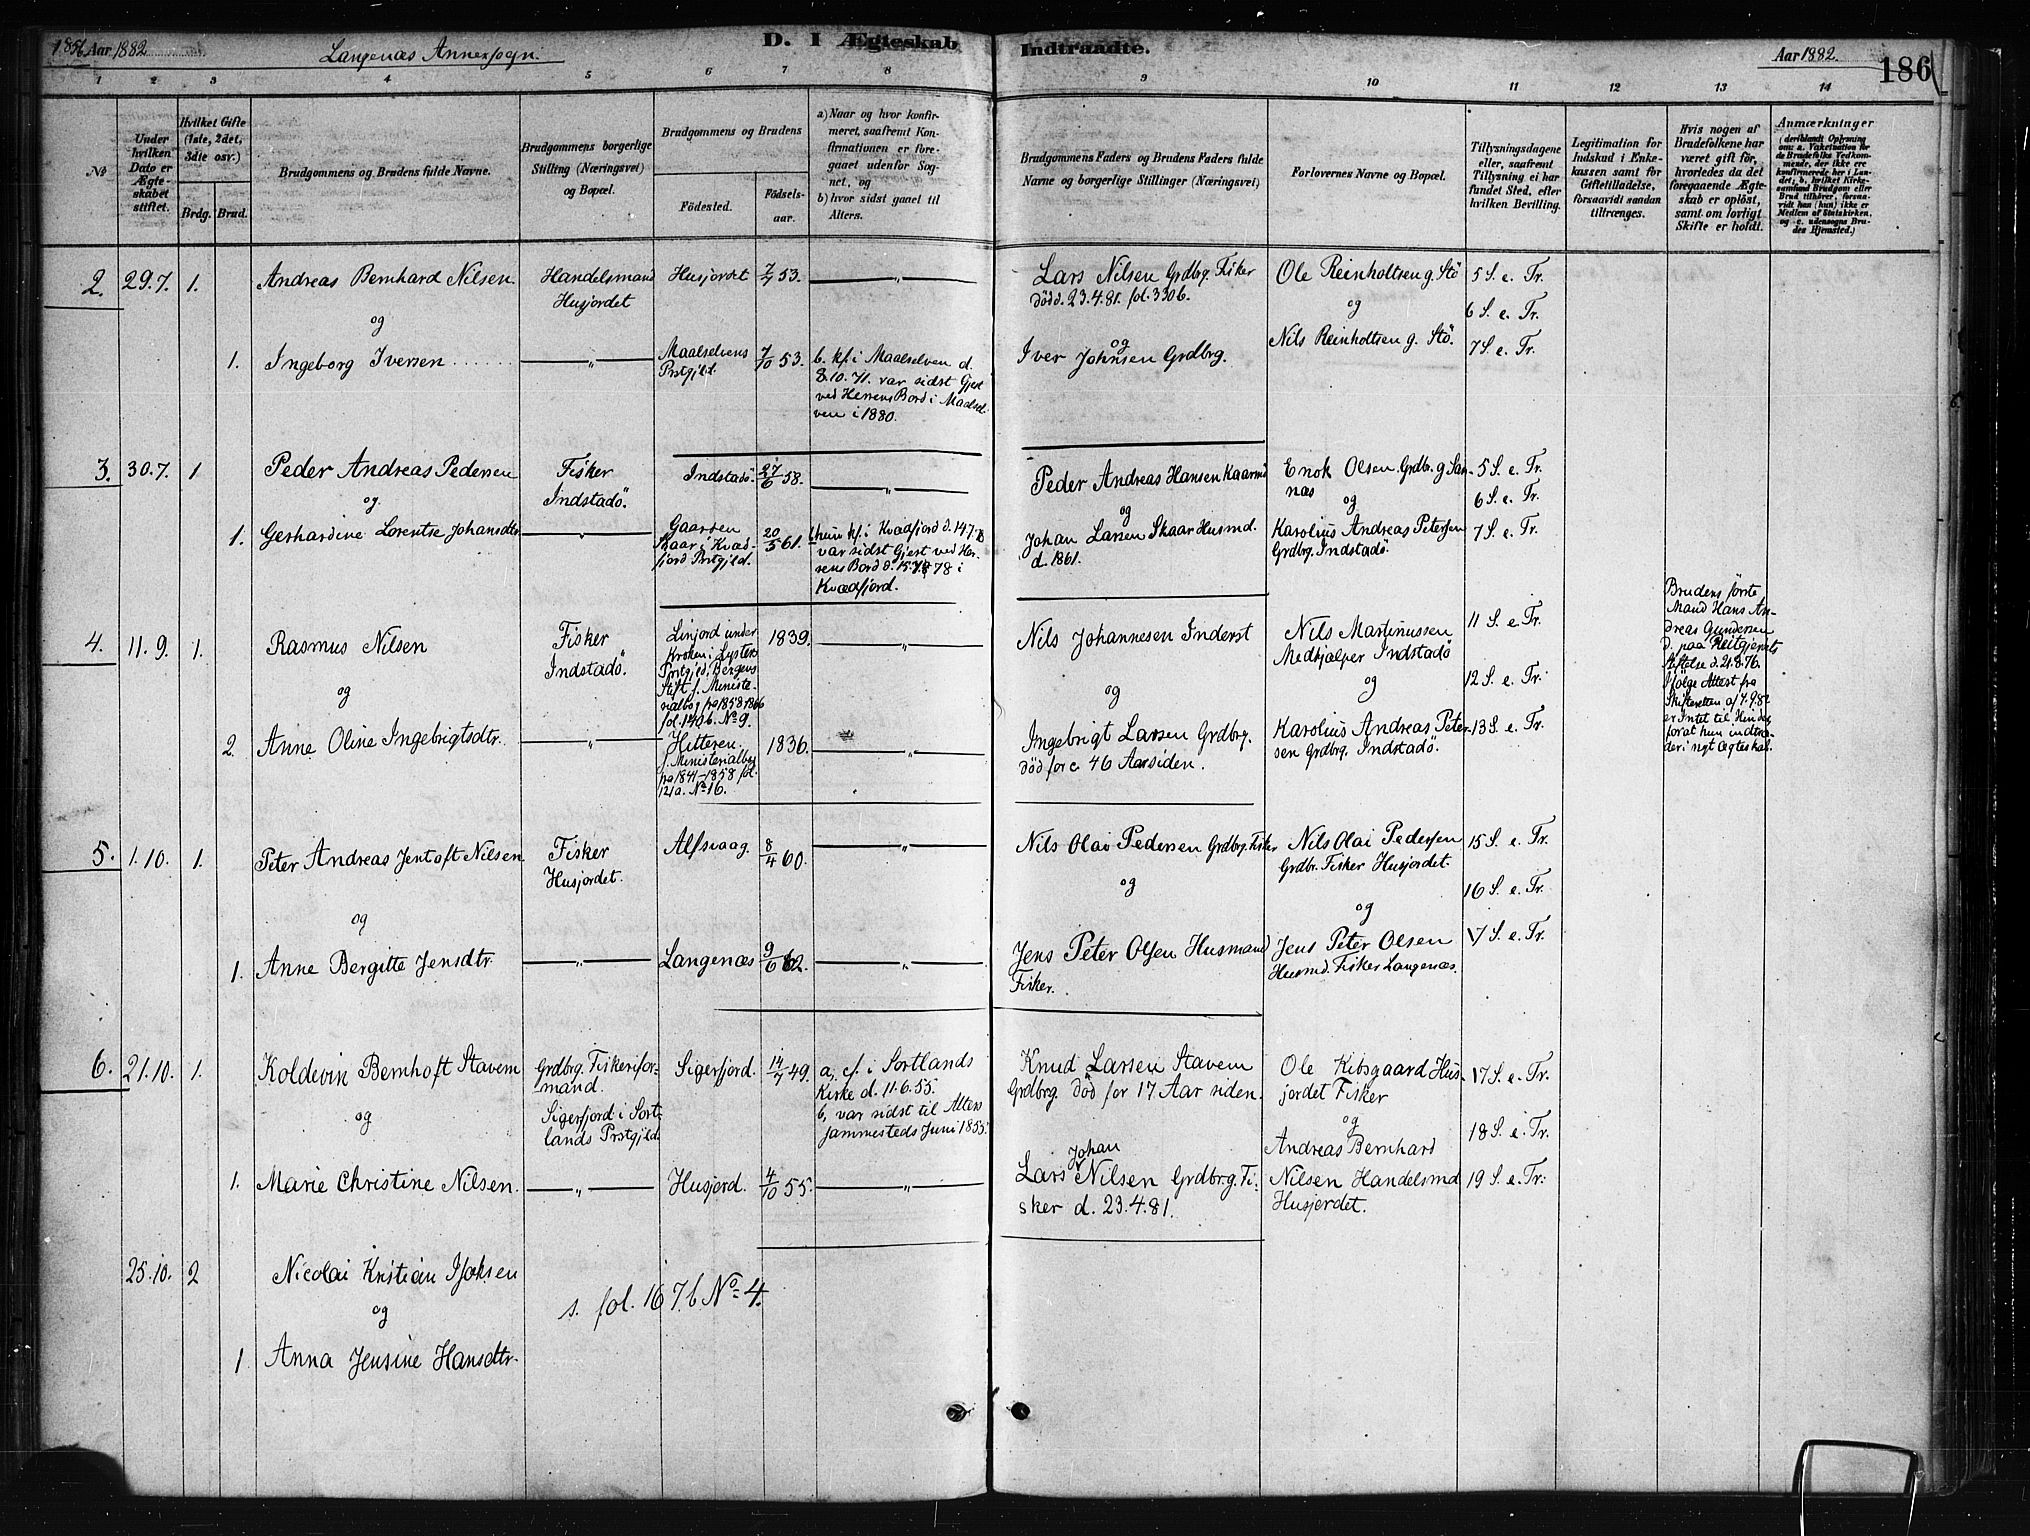 1856 Aar 1882
Langenæs Annexsogn.
D. I Ægteskab
Indtraadte.
Aar 1882.
186
1 2 3 4 5 6 7 8 9 10 11 12 13 14
No
Under hvilken Dato er Ægteskabet stiftet.
Hvilket Gifte (1ste, 2det, 3die osv.)
Brdg. Brud.
Brudgommens og Brudens fulde Navne.
Brudgommens borgerlige Stilling (Næringsvei) og Bopæl.
Brudgommens og Brudens
Födested.
Födselsaar.
a) Naar og hvor konfirmeret, saafremt Konfirmationen er foregaaet udenfor Sognet, og
b) hvor sidst gaaet til Alters.
Brudgommens Faders og Brudens Faders fulde
Navne og borgerlige Stillinger (Næringsvei)
Forlovernes Navne og Bopæl.
Tillysningsdagene eller, saafremt Tillysning ei har fundet Sted, efter hvilken Bevilling.
Legitimation for Indskud i Enkekassen samt for Giftetilladelse, forsaavidt saadan tiltrænges.
Hvis nogen af Brudefolkene har været gift för, hvorledes da det foregaaende Ægteskab er oplöst, samt om lovligt Skifte er holdt.
Anmærkninger
(deriblandt Oplysning om: a. Vaksination for de Brudefolks Vedkommende, der ikke ere konfirmerede her i Landet; b. hvilket Kirkesamfund Brudgom eller Brud tilhörer, forsaavidt han (hun) ikke er Medlem af Statskirken, og c. udensogns Brudes Hjemsted.)
2. 29.7. 1. Andreas Bernhard Nilsen
Handelsmand
Husjordet
Husjordet 7/7 53. — „ —
Lars Nilsen Grdbrg. Fisker
död d. 23.4.81. fol. 330 b.
Ole Reinholtsen g. Stö
og
Nils Reinholtsen g. Stö.
5 S. e. Tr.
6 S. e. Tr.
7 S. e. Tr.
og
1. Ingeborg Iversen
— „ —
Maalselvens
Prstgjld.
7/10 53.
b. kf. i Maalselven d.
8.10.71. var sidst Gjest
ved Herrens Bord i Maalsel-
ven i 1880.
og
Iver Johnsen Grdbrg.
3. 30.7. 1 Peder Andreas Pedersen
Fisker
Indstadö.
Indstadö. 27/6 58. — „ —
Peder Andreas Hansen
Enok Olsen Grdbr. g. San-
næs
og
Karolius Andreas Petersen
Grdbrg. Indstadö.
5 S. e. Tr.
6 S. e. Tr.
7 S. e. Tr.
og
1. Gerhardine Lorentse Johansdtr
— „ —
Gaarden
Skaar i Kvæd-
fjord Prstgjld.
20/5 61.
hun kf. i Kvædfjord d.
var sidst Gjest ved Her-
rens Bord d. 78 i
Kvædfjord.
og
Johan Larsen Skaar Husmd.
d. 1861.
4. 11.9. 1. Rasmus Nilsen
Fisker
Indstadö.
Linjord under
Kroken i Lysters
Prstgjld, Bergens
Stift s. Ministe-
rialbog fra 1858-1866
fol. 140 b. No 9.
1839. — „ —
Nils Johannesen Inderst
Nils Martinussen
Medhjælper Indstadö
og
Karolius Andreas Peter-
sen Grdbrg. Indstadö.
11 S. e. Tr.
12 S. e. Tr.
13 S. e. Tr.
Brudens förste
Mand Hans An-
dreas Gundersen
d. paa Reitgjerdets
Stiftelse d. 21.8.76.
Ifölge Attest fra
Skifteretten af 7.9.82
er Intet til Hinder
for at hun indtræ-
der i nyt Ægteskab.
og
2. Anne Oline Ingebrigtsdtr.
— „ —
Hitteren.
s. Ministerialbog
fra 1841-1858 fol.
121a. No 16.
1836. — „ —
og
Ingebrigt Larsen Grdbrg.
död for c. 46 Aar siden.
5. 1.10. 1. Peter Andreas Jentoft Nilsen
Fisker
Husjordet.
Alfsvaag. 8/4 60. — „ —
Nils Olai Pedersen Grdbrg. Fisker
Nils Olai Pedersen
Grdbr. Fisker Husjordet.
og
Jens Peter Olsen
Husmd. Fisker Langenæs.
15 S. e. Tr.
16 S. e. Tr.
17 S. e. Tr.
og
1. Anne Bergitte Jensdtr.
— „ — Langenæs 9/6 62. — „ —
og
Jens Peter Olsen Husmand
Fisker.
6. 21.10. 1. Koldevin Bernhoft Stavem
Grdbrg. Fiskerifor-
mand.
Sigerfjord i Sort-
lands Prstgjld.
Sigerfjord. 14/7 49.
a, cf. i Sortlands
Kirke d. 11.6.55.
b, var sidst til Alters
sammesteds Juni 1855.
Knud Larsen Stavem
Grdbrg. död for 17 Aar siden.
Ole Kibsgaard Hus-
jordet Fisker
og
Andreas Bernhard
Nilsen Handelsmd
Husjordet.
17 S. e. Tr.
18 S. e. Tr.
19 S. e. Tr.
og
1. Marie Christine Nilsen.
— „ — Husjord. 4/10 55. — „ —
Johan
Lars Nilsen Grdbrg. Fi-
sker d. 23.4.81.
25.10. 2 Nicolai Kristian Isaksen
og
s. fol. 167b No 4.
1 Anna Jensine Hansdtr.